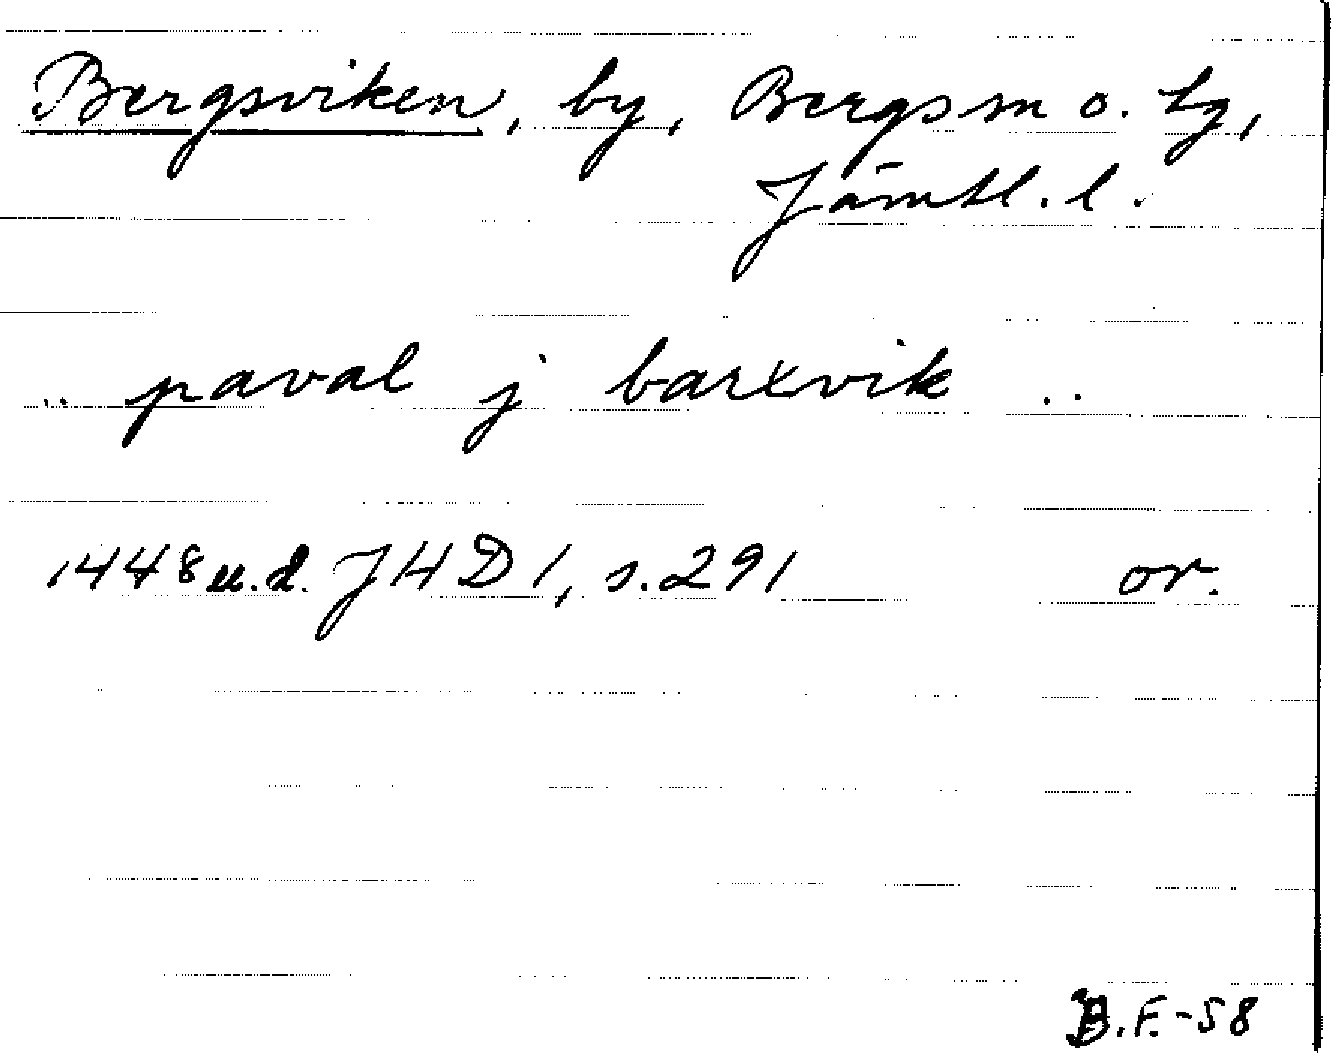 Bergsviken, by, Bergs sn o. tg,
Jämtl. l.
.. paval j barxvik ..
1448 u.d. JHD 1, s. 291 or.
B.F.-58